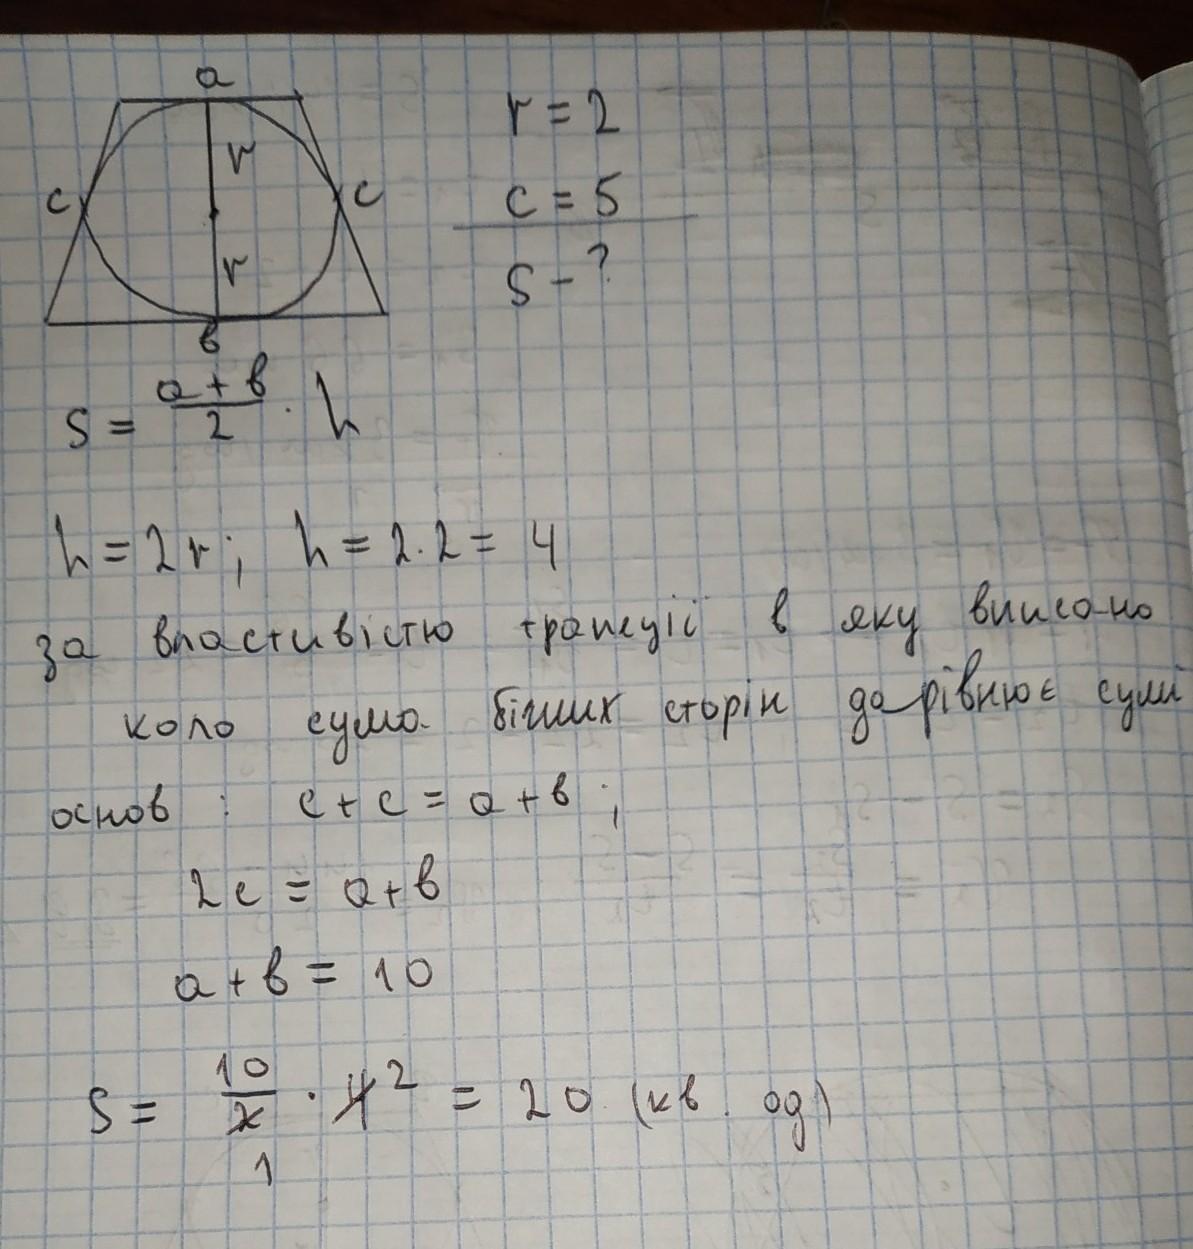 a
r
c
c
r
в
r = 2
c = 5
S - ?
S = a + в / 2 · h
h = 2r; h = 2·2 = 4
за властивістю трапеції в яку вписано
коло сума бічних сторін дорівнює сумі
основ : c + c = a + в ;
2c = a + в
a + в = 10
S = 10 / 2 · 4 2 = 20 (кв. од)
1